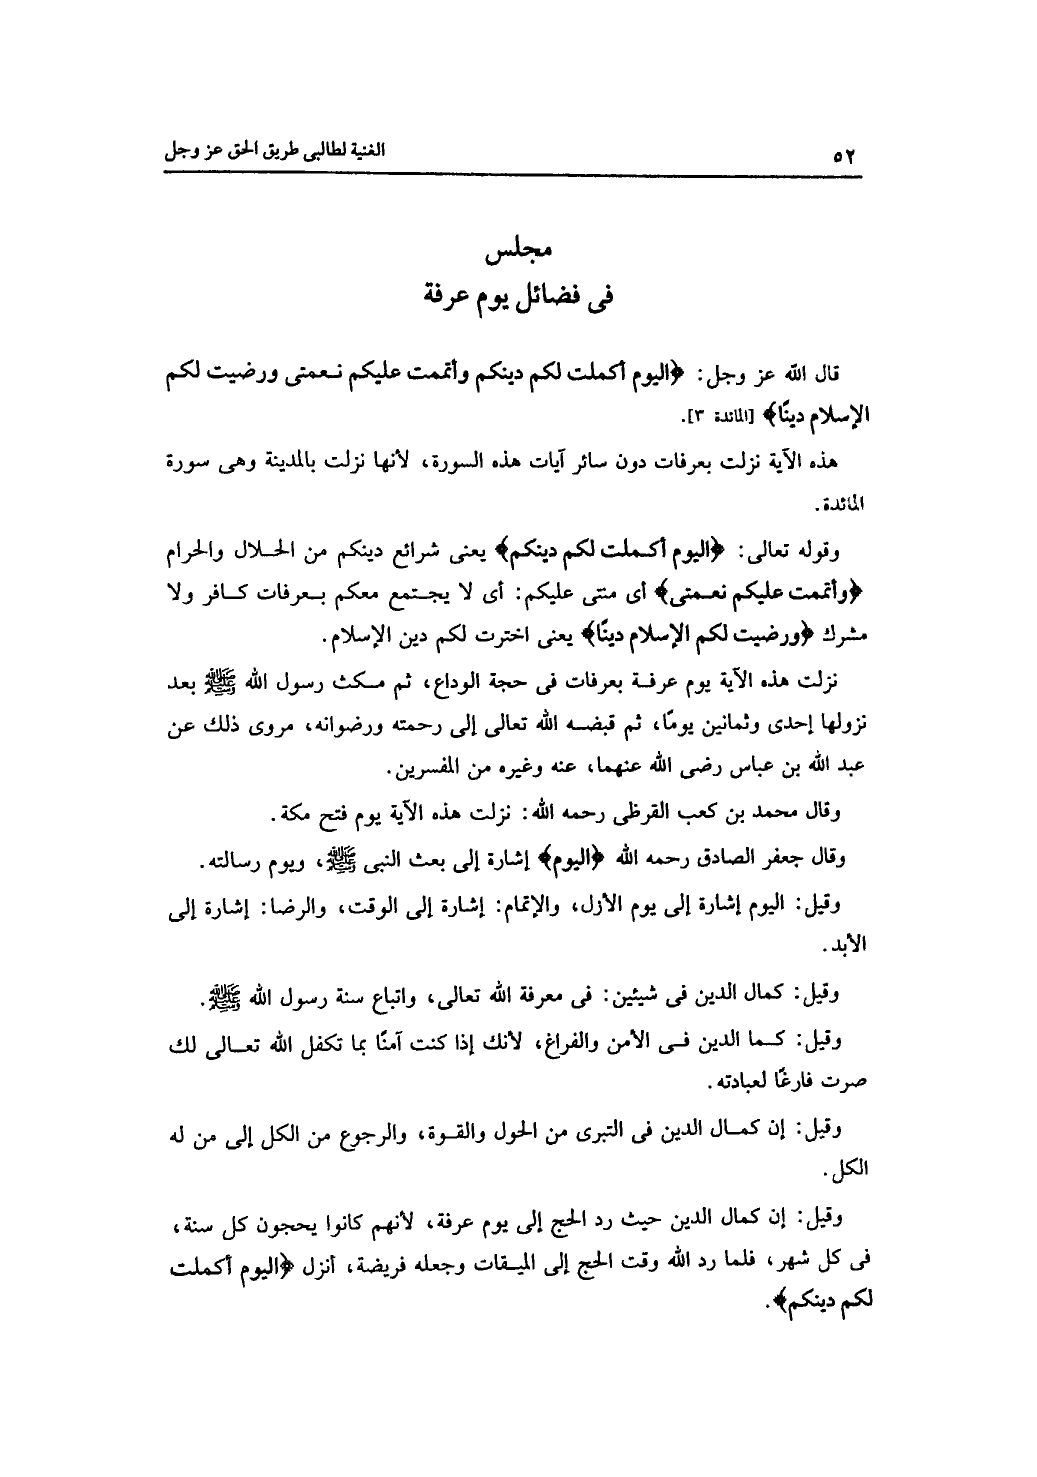 ٥٢
الغنية لطالبى طريق الحق عز وجل
مجلس
فى فضائل يوم عرفة
قال الله عز وجل: ﴿اليوم أكملت لكم دينكم وأتممت عليكم نعمتى ورضيت لكم
الإسلام دينًا﴾ [المائدة ٣].
هذه الآية نزلت بعرفات دون سائر آيات هذه السورة، لأنها نزلت بالمدينة وهى سورة
المائدة.
وقوله تعالى: ﴿اليوم أكملت لكم دينكم﴾ يعنى شرائع دينكم من الحلال والحرام
﴿وأتممت عليكم نعمتى﴾ أى منتى عليكم: أى لا يجتمع معكم بعرفات كافر ولا
مشرك ﴿ورضيت لكم الإسلام دينًا﴾ يعنى اخترت لكم دين الإسلام.
نزلت هذه الآية يوم عرفة بعرفات فى حجة الوداع، ثم مكث رسول الله ﷺ بعد
نزولها إحدى وثمانين يومًا، ثم قبضه الله تعالى إلى رحمته ورضوانه، مروى ذلك عن
عبد الله بن عباس رضى الله عنهما، عنه وغيره من المفسرين.
وقال محمد بن كعب القرظى رحمه الله: نزلت هذه الآية يوم فتح مكة.
وقال جعفر الصادق رحمه الله ﴿اليوم﴾ إشارة إلى بعث النبى ﷺ، ويوم رسالته.
وقيل: اليوم إشارة إلى يوم الأزل، والإتمام: إشارة إلى الوقت، والرضا: إشارة إلى
الأبد.
وقيل: كمال الدين فى شيئين: فى معرفة الله تعالى، واتباع سنة رسول الله ﷺ.
وقيل: كما الدين فى الأمن والفراغ، لأنك إذا كنت آمنًا بما تكفل الله تعالى لك
صرت فارغًا لعبادته.
وقيل: إن كمال الدين فى التبرى من الحول والقوة، والرجوع من الكل إلى من له
الكل.
وقيل: إن كمال الدين حيث رد الحج إلى يوم عرفة، لأنهم كانوا يحجون كل سنة،
فى كل شهر، فلما رد الله وقت الحج إلى الميقات وجعله فريضة، أنزل ﴿اليوم أكملت
لكم دينكم﴾.